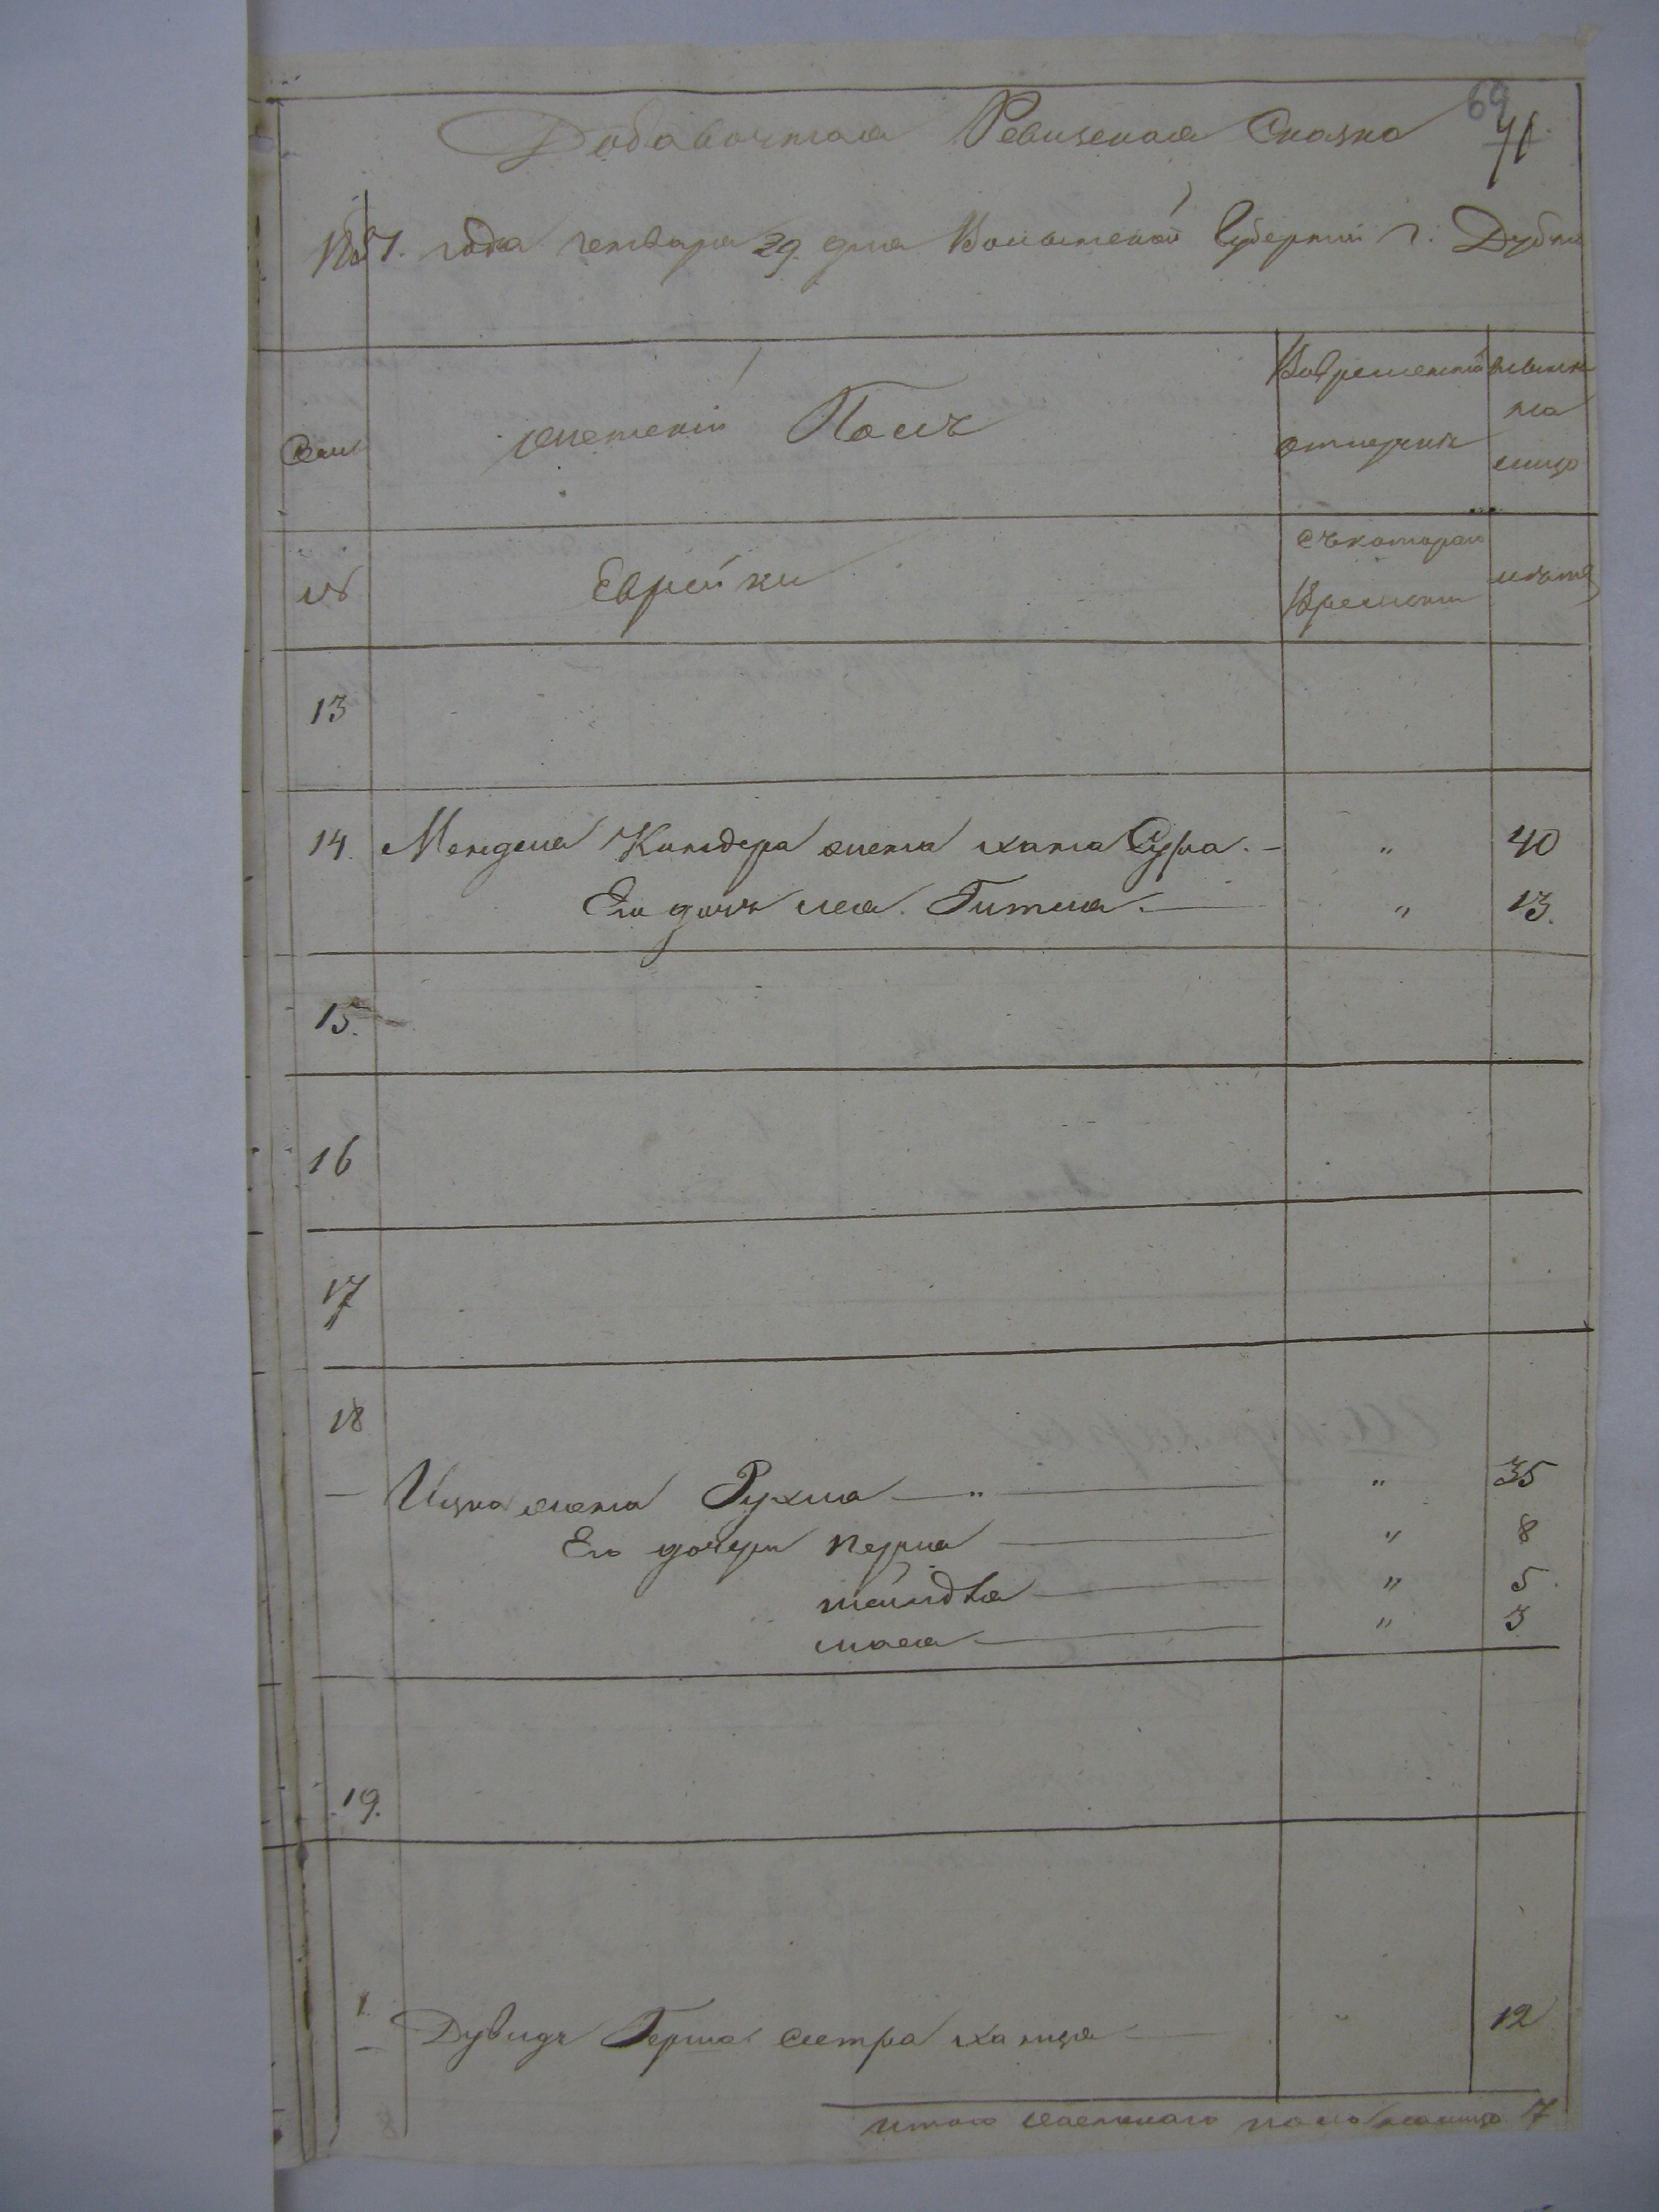 69
71
Добавочная Ревизская Сказка
года генваря 29 дня Волынской Губернии г. Дубно
женскій Полъ
Вовременной
отлучкѣ
нынѣ
на
лицо
Семьи
№
Еврейки
съкотораго
Времени
лѣта
13
14. Мендела Киндера жена хана Сура. — " 40
Его дочь леа. Гитла. — " 13.
15.
16
17
18
Ицка жена Рухла — " — " 35
Его дочери перла — " 8
шейндля — " 5
маля — " 3
19.
1. Дувидъ Герша сестра ханца — " 12
итого женскаго пола налицо 7